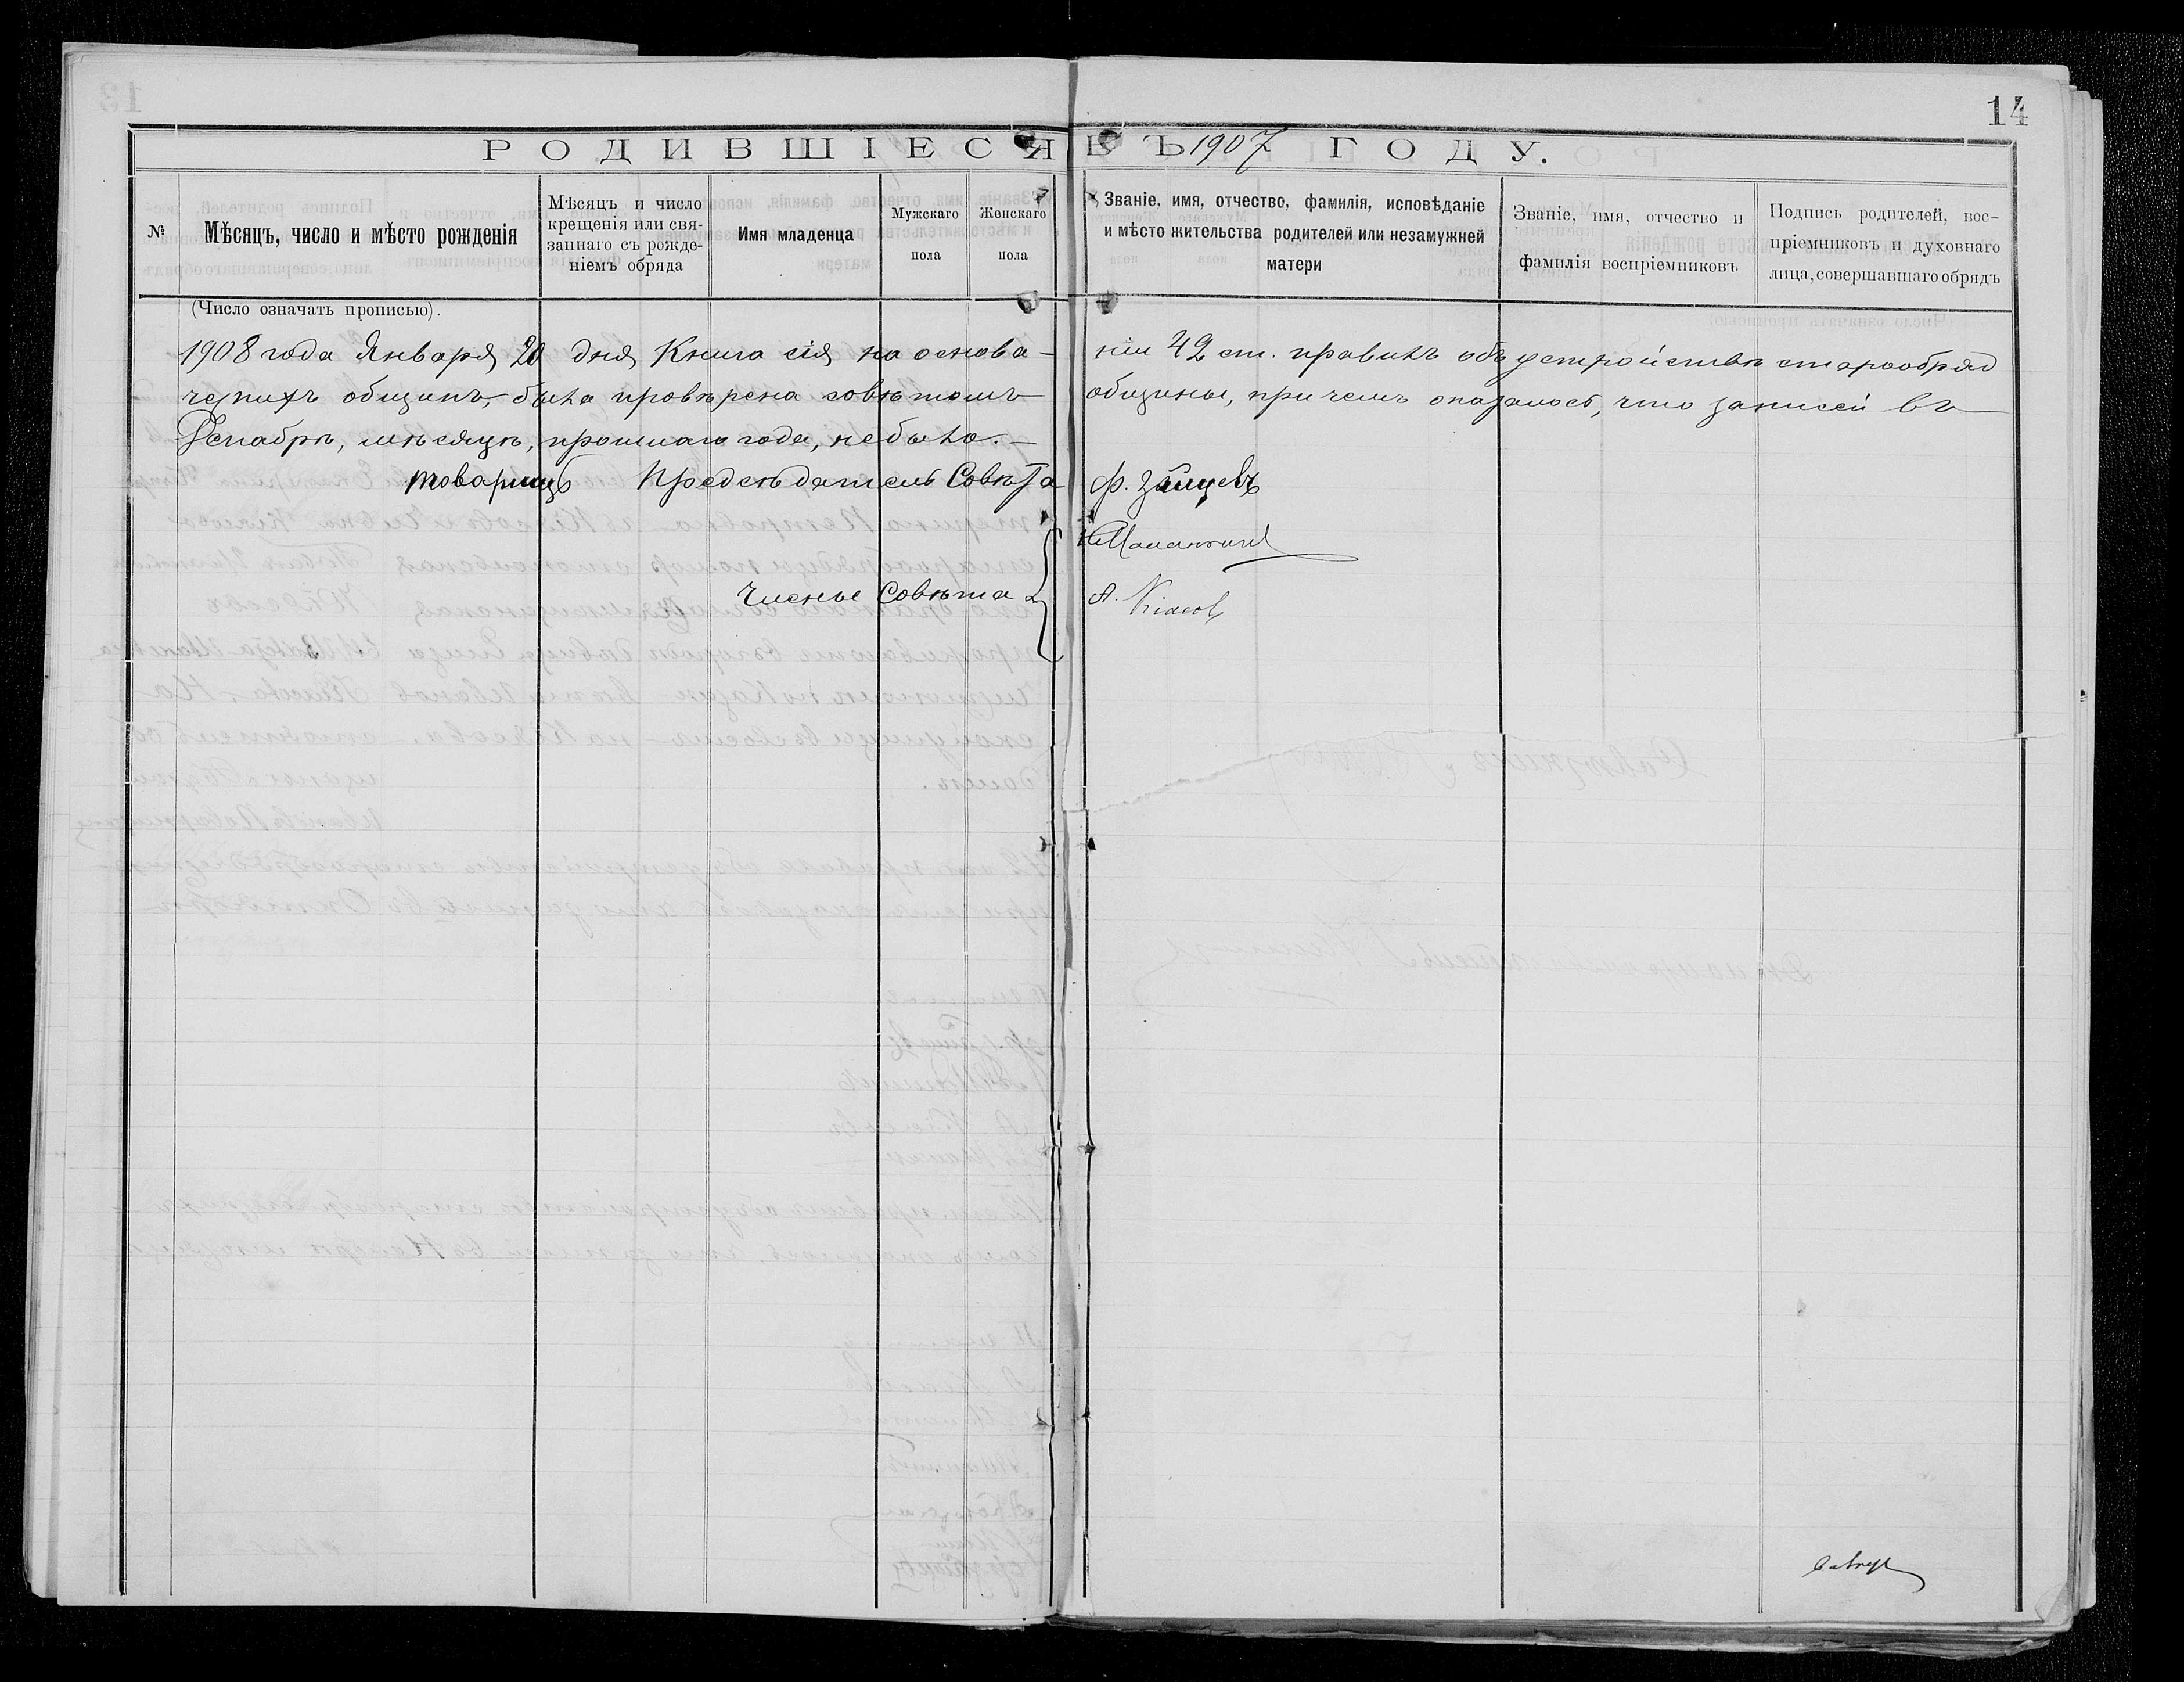 14
РОДИВШІЕСЯ ВЪ 1907 ГОДУ.
№
Мѣсяцъ, число и мѣсто рожденія
Мѣсяцъ и число
крещенія или свя-
заннаго съ рожде-
ніемъ обряда
Имя младенца
Мужскаго
пола
Женскаго
пола
Званіе, имя, отчество, фамилія, исповѣданіе
и мѣсто жительства родителей или незамужней
матери
Званіе, имя, отчество и
фамилія воспріемниковъ
Подпись родителей, вос-
пріемниковъ и духовнаго
лица, совершавшаго обрядъ
(Число означать прописью).
1908 года Января 20 дня Книга сія на основа- ніи 42 ст. правилъ объ устройствѣ старообряд
ческихъ общинъ, была провѣрена совѣтомъ общины, при чемъ оказалось, что записей въ
Декабрѣ, мѣсяцѣ, прошлаго года, не было.
Товарищъ Предсѣдатель Совѣта Ф. Зайцевъ
Члены Совѣта
А. Кіасов